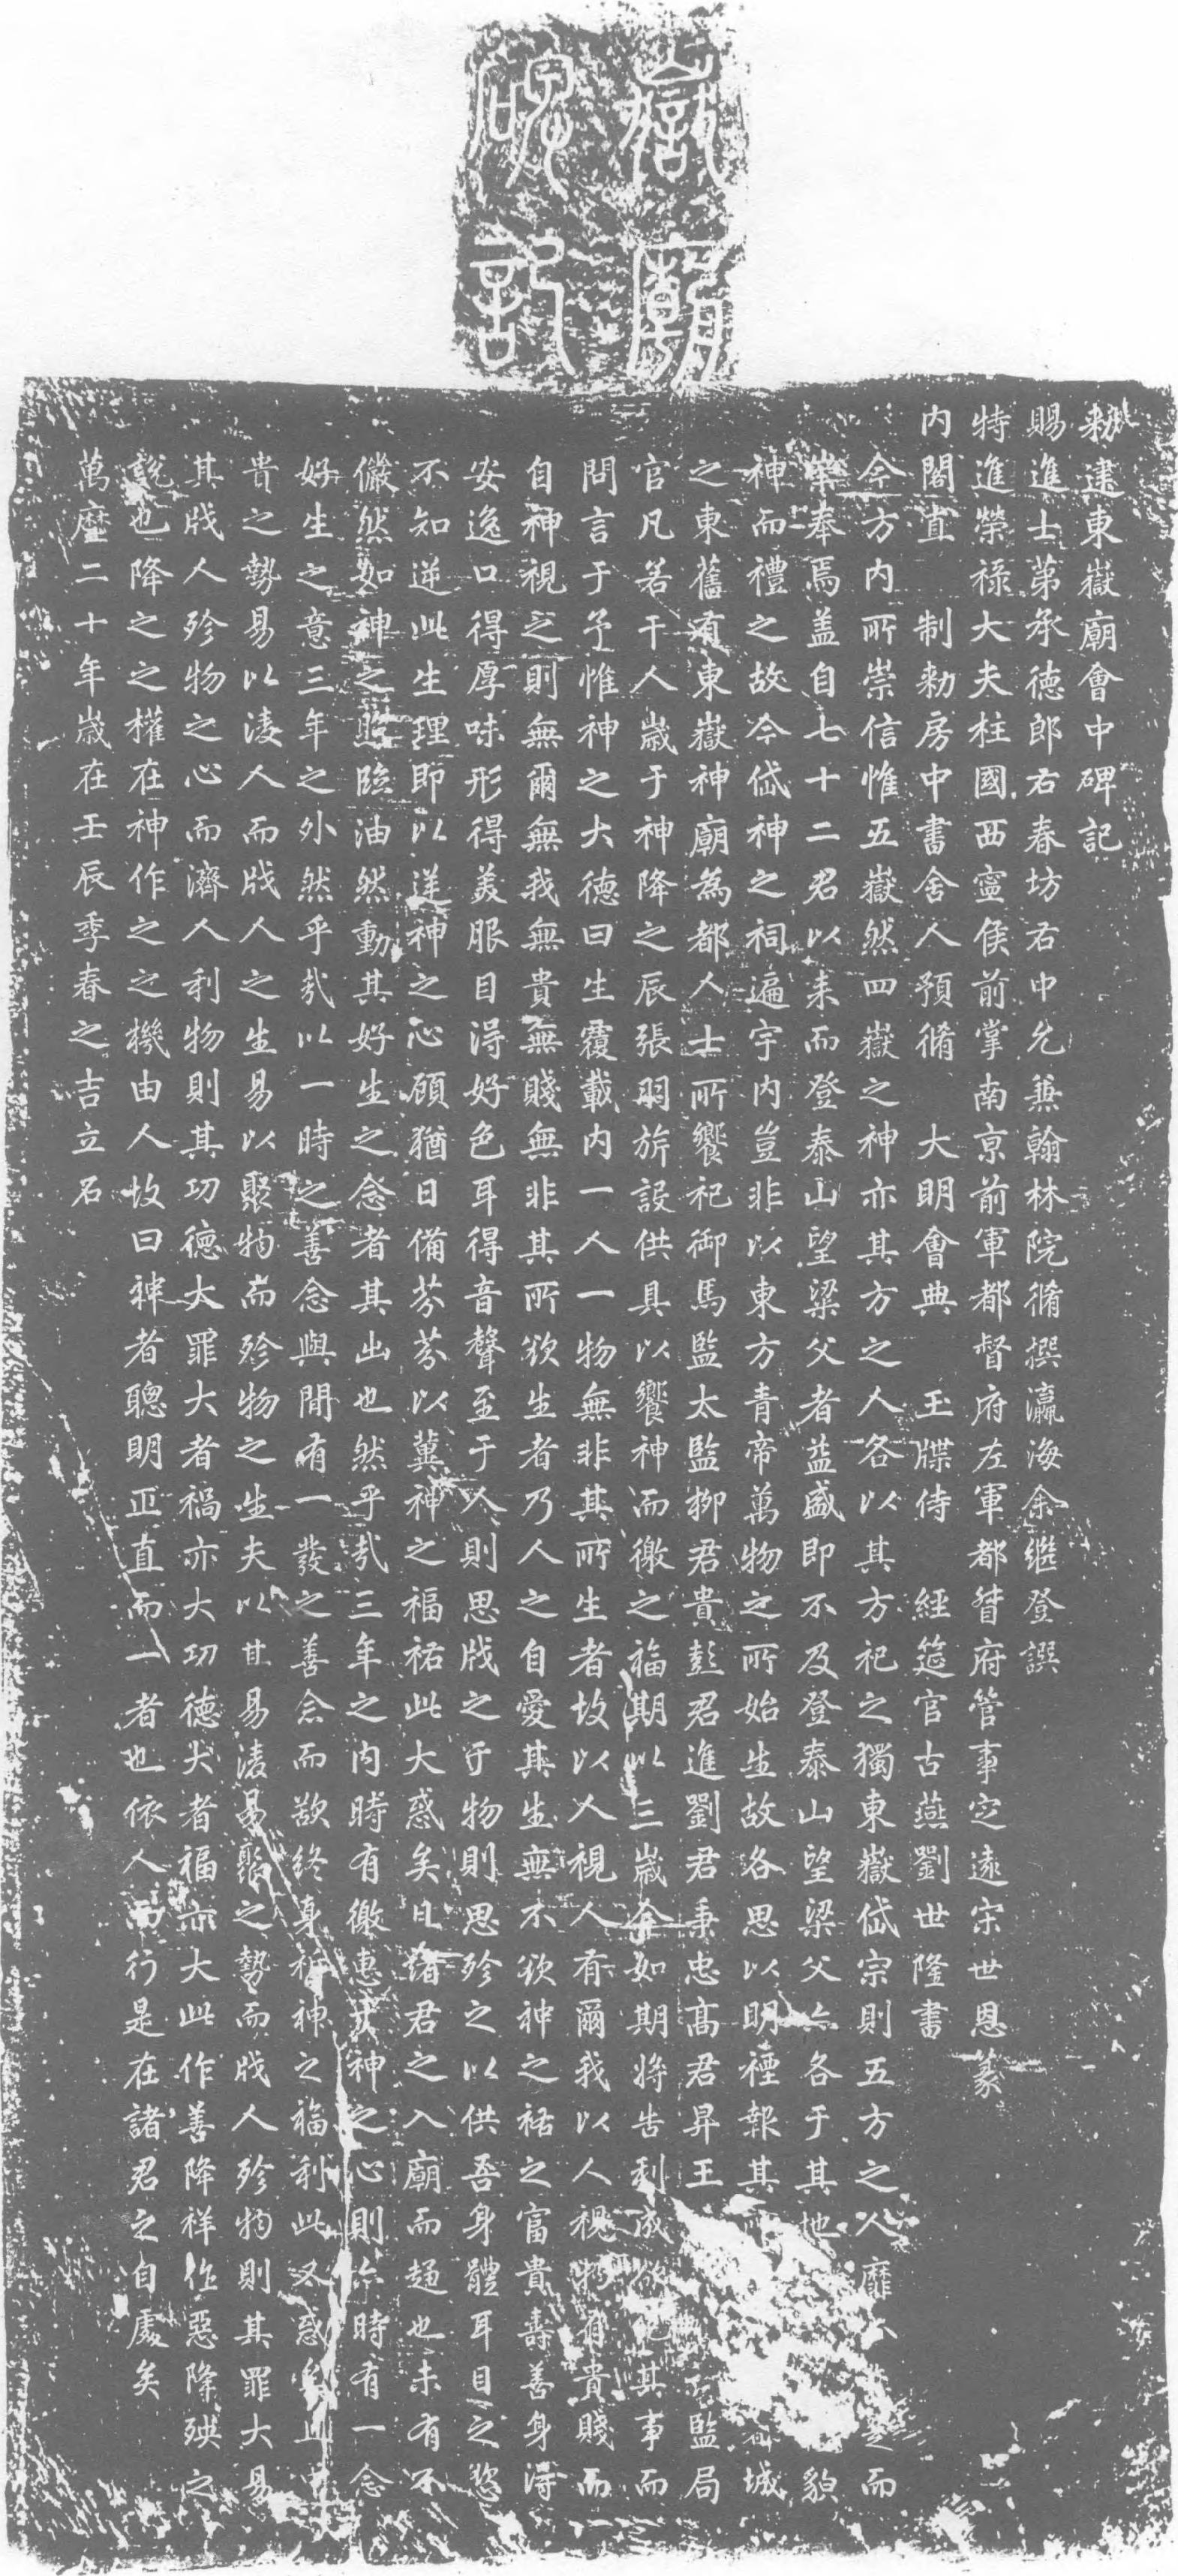 嶽廟
碑記
勑建東嶽廟會中碑記
賜進士第承德郎右春坊右中允兼翰林院脩撰瀛海余繼登譔
特進榮祿大夫柱國西寧侯前掌南京前軍都督府左軍都督府管事定遠宋世恩篆
內閣直 制勑房中書舍人預脩 大明會典 玉牒侍 經筵官古燕劉世隆書
今方內所崇信惟五嶽然四嶽之神亦其方之人各以其方祀之獨東嶽岱宗則五方之人靡 而
崇奉焉盖自七十二君以来而登泰山望梁父者益盛即不及登泰山望梁父亦各于其地 貌
神而禮之故今岱神之祠遍宇內豈非以東方青帝萬物之所始生故各思以明禋報其 都城
之東舊有東嶽神廟為都人士所饗祀御馬監太監柳君貴彭君進劉君秉忠高君昇王 監局
官凡若干人歲于神降之辰張羽旂設供具以饗神而徼之福期以三歲今如期將告利成欲 其事而
問言于予惟神之大德曰生覆載內一人一物無非其所生者故以人視人有爾我以人視物有貴賤而
自神視之則無爾無我無貴無賤無非其所欲生者乃人之自愛其生無不欲神之祐之富貴壽善身得
安逸口得厚味形得美服目得好色耳得音聲至于人則思戕之于物則思殄之以供吾身體耳目之慾
不知逆此生理即以逆神之心顧猶日備芬芬以冀神之福祐此大惑矣且諸君之入廟而趨也未有不
儼然如神之照臨油然動其好生之念者其出也然乎哉三年之內時有徼惠于神之心則亦時有一念
好生之意三年之外然乎哉以一時之善念與間有一發之善念而欲終身祈神之福利此又惑矣且中
貴之勢易以淩人而戕人之生易以聚物而殄物之生夫以其易淩易聚之勢而戕人殄物則其罪大易
其戕人殄物之心而濟人利物則其功德大罪大者禍亦大功德大者福亦大此作善降祥作惡降殃之
說也降之之權在神作之之機由人故曰神者聰明正直而一者也依人而行是在諸君之自處矣
萬曆二十年歲在壬辰季春之吉立石